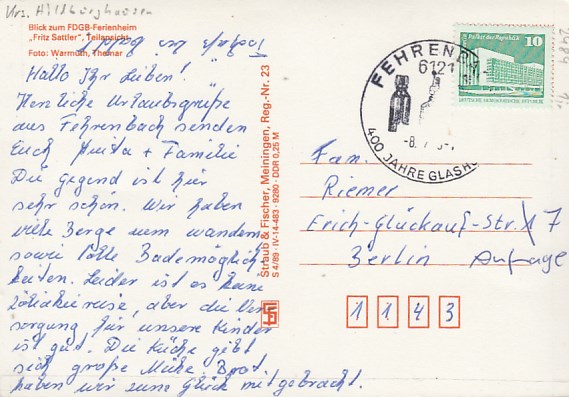 Krs. Hildburghausen
Blick zum FDGB-Ferienheim
„Fritz Sattler", Teilansicht
Foto: Warmuth, Themar
Hallo Ihr Lieben!
Herzliche Urlaubsgrüße
aus Fehrenbach senden
Euch + Familie
Die Gegend ist hier
sehr schön. Wir haben
viele Berge zum wandern
sowie tolle Bademöglich
keiten. Leider ist es keine
aber die Ver
sorgung für unsere Kinder
ist gut. Die Küche gibt
sich große Mühe. Boot
haben wir zum Glück mitgebracht.
Straub & Fischer, Meiningen, Reg.-Nr. 23
S 4/89 IV-14-483 · 9280 · DDR 0,25 M
FEHRENB
6121
-8.
400 JAHRE GLASH
10
Fam.
Riemer
Erich-Glückauf-Str. 17
Berlin Aufgage
1 1 4 3